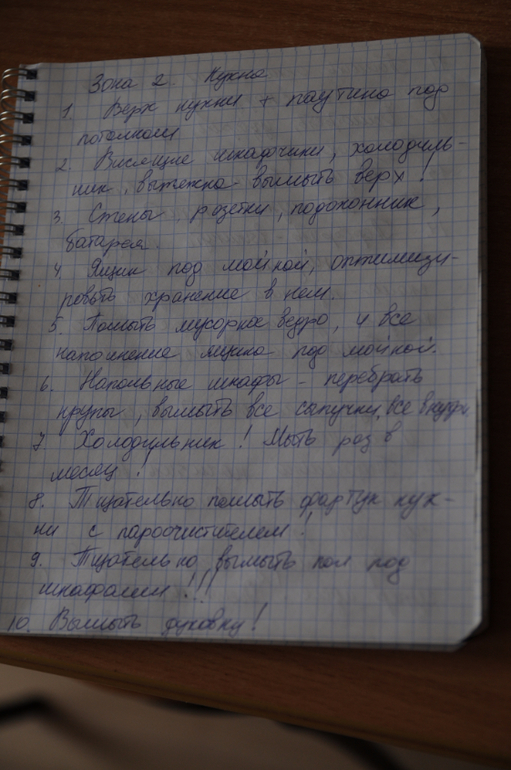 Зона 2. Кухня
1. Верх кухни + паутина под
потолком
2. Висящие шкафчики, холодиль-
ник, вытяжка вымыть верх!
3. Стены розетки, подоконник,
батарея.
4 Ящик под мойкой, оптимизи-
ровать хранение в нем.
5. Помыть мусорное ведро, и все
наполнение ящика под мойкой.
6. Напольные шкафы - перебрать
крупы, вымыть все сыпучки, все внутри
7. Холодильник! Мыть раз в
месяц!
8. Тщательно помыть фартук кух-
ни с пароочистителем!
9. Тщательно вымыть пол под
шкафами!!!
10. Вымыть духовку!